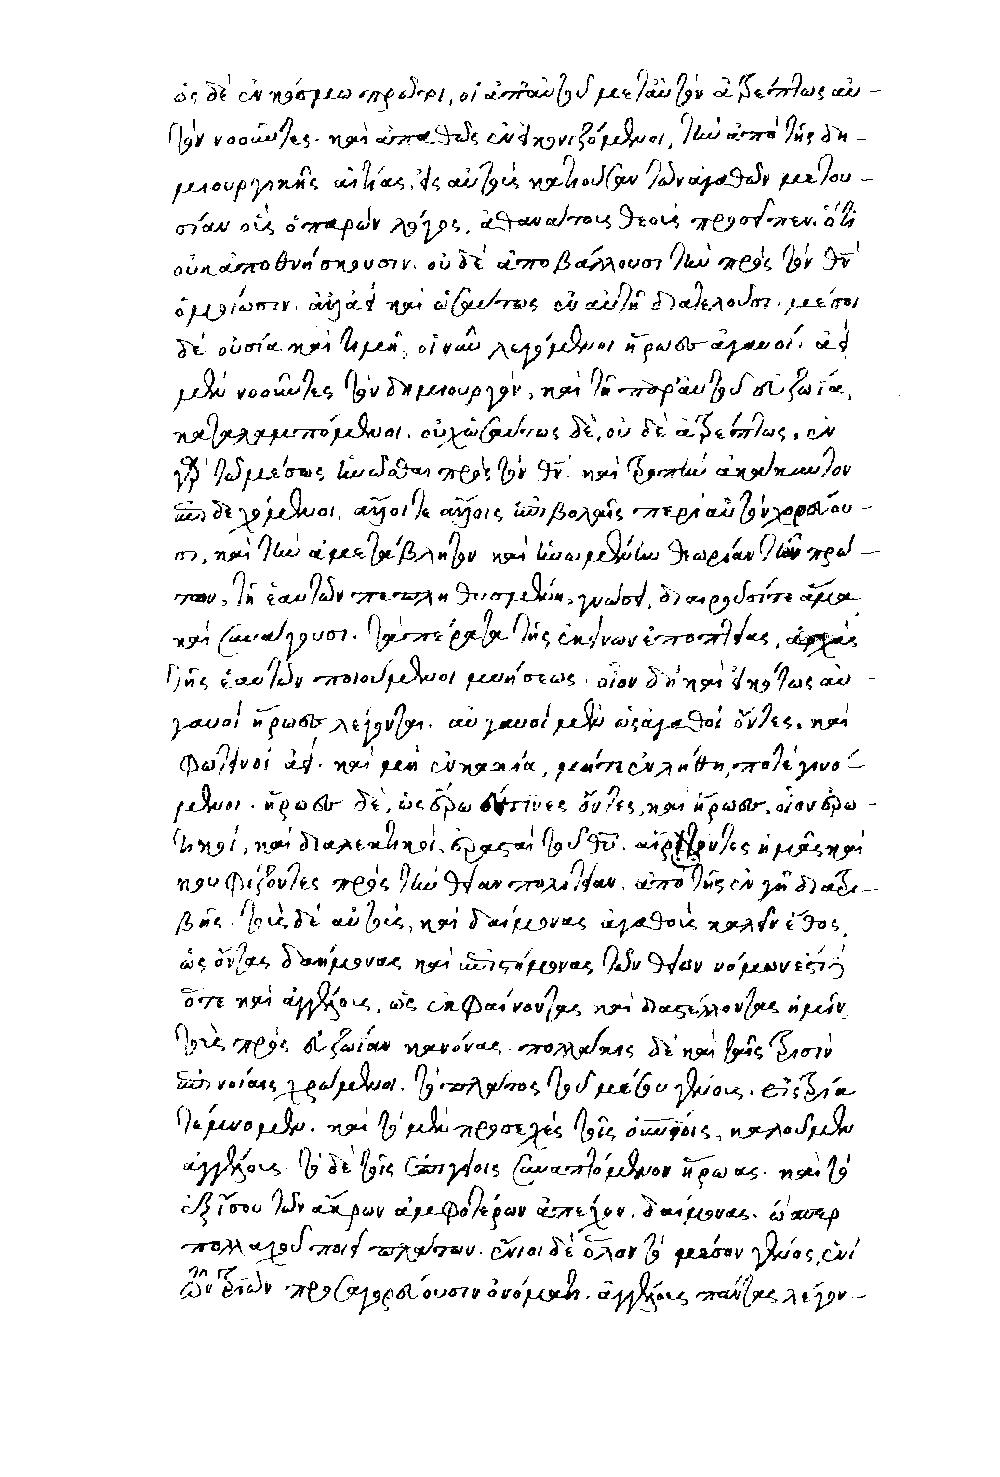 ὡς δὲ ἐν κόσμω πρῶτοι, οἱ ἀπ' αὐτοῦ μετ' αὐτὸν ἀτρέπτως αὐ-
τὸν νοοῦντες. καὶ ἀπαθῶς ἐνεικονιζόμενοι, τὴν ἀπὸ τῆς δη-
μιουργικῆς αἰτίας, εἰς αὐτοὺς κατιοῦσαν τῶν ἀγαθῶν μετου-
σίαν οὓς ὁ παρὼν λόγος, ἀθανάτους θεοὺς προσεῖπεν. ὅτι
οὐκ ἀποθνήσκουσιν. οὐδὲ ἀποβάλλουσι τὴν πρὸς τὸν θν̄
ὁμοίωσιν. ἀλλ' ἀεὶ καὶ ὡσαύτως ἐν αὐτῆ διατελοῦσι. μέσοι
δὲ οὐσία καὶ τιμῆ, οἱ νῦν λεγόμενοι ἥρωες ἀγαυοί. ἀεὶ
μὲν νοοῦντες τὸν δημιουργὸν, καὶ τῆ παρ' αὐτοῦ εὐζωΐα,
καταλαμπόμενοι. οὐχ ὡσαύτως δὲ, οὐδὲ ἀτρέπτως. ἐν
γὰρ τῶ μέσως ἡνῶσθαι πρὸς τὸν θν̄. καὶ τροπὴν ἀκάκωτον
ἐπιδεχόμενοι. ἄλλοι τε ἄλλοις ἐπιβολαῖς περὶ αὐτὸν χορεύου-
σι, καὶ τὴν ἀμετάβλητον καὶ ἡνωμένην θεωρίαν τῶν πρώ-
των, τῆ ἑαυτῶν πεπληθυσμένη γνώσει, διαιροῦσί τε ἅμα
καὶ συνάγουσι. τὰ πέρατα τῆς ἐκείνων ἐποπτείας, ἀρχὰς
τῆς ἑαυτῶν ποιούμενοι μυήσεως. οἷον δὴ καὶ εἰκότως ἀυ-
γαυοὶ ἥρωες λέγονται. αὐγαυοὶ μὲν ὡς ἀγαθοὶ ὄντες. καὶ
φωτεινοὶ ἀεὶ. καὶ μὴ ἐν κακία, μήτε ἐν λήθη, ποτὲ γινό-
μενοι. ἥρωες δὲ, ὡς ἔρωές τινες ὄντες, καὶ ἥρωες, οἷον ἐρω-
τικοί, καὶ διαλεκτικοί. ἐρασταὶ τοῦ θῦ. αἴροντες ἡμᾶς καὶ
κουφίζοντες πρὸς τὴν θείαν πολιτείαν. ἀπὸ τῆς ἐν γῆ διατρι-
βῆς. τοὺς δὲ αὐτοὺς, καὶ δαίμονας ἀγαθοὺς καλεῖν ἔθος,
ὡς ὄντας δαήμονας καὶ ἐπιστήμονας τῶν θείων νόμων ἐστὶ
ὅτε καὶ ἀγγέλους, ὡς ἐκφαίνοντας καὶ διαγγέλλοντας ἡμῖν
τοὺς πρὸς εὐζωΐαν κανόνας. πολλάκις δὲ καὶ ταῖς τρισὶν
ἐπινοίαις χρώμενοι. τὸ πλάτος τοῦ μέσου γένους. εἰς τρία
τέμνομεν. καὶ τὸ μὲν προσεχὲς τοῖς οὐρανίοις, καλοῦμεν
ἀγγέλους. τὸ δὲ τοῖς ἐπιγείοις συναπτόμενον ἥρωας. καὶ τὸ
ἐξ ἴσου τῶν ἄκρων ἀμφοτέρων ἀπέχον, δαίμονας. ὥσπερ
πολλαχοῦ ποιεῖ πλάτων. ἔνιοι δὲ ὅλον τὸ μέσον γένος, ἑνὶ
τῶν τριῶν προσαγορεύουσιν ὀνόματι. ἀγγέλους πάντας λέγον-